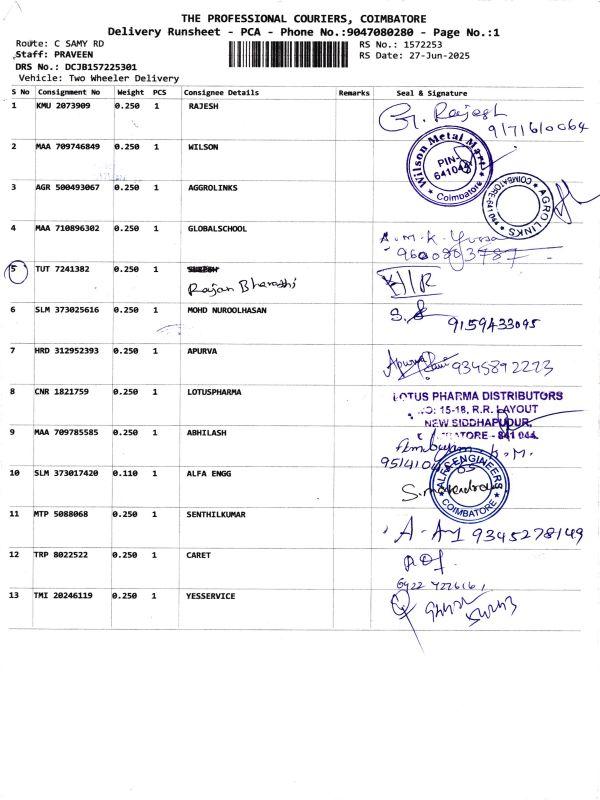 THE PROFESSIONAL COURIERS, COIMBATORE
Delivery Runsheet - PCA - Phone No.:9047080280 - Page No.:1
Route: C SAMY RD
Staff: PRAVEEN
DRS No.: DCJB157225301
Vehicle: Two Wheeler Delivery
RS No.: 1572253
RS Date: 27-Jun-2025
S No Consignment No Weight PCS Consignee Details Remarks Seal & Signature
1 KMU 2073909 0.250 1 RAJESH
G. Rajesh
9171610064
2 MAA 709746849 0.250 1 WILSON
Wilson Metal Mart
PIN-
641044
Coimbatore
3 AGR 500493067 0.250 1 AGGROLINKS
AGRO LINKS
COIMBATORE-641
4 MAA 710896302 0.250 1 GLOBALSCHOOL
A.M.K
9600803787
5 TUT 7241382 0.250 1
Rajan Bharathi
6 SLM 373025616 0.250 1 MOHD NUROOLHASAN
9159433095
7 HRD 312952393 0.250 1 APURVA
Apurva 9345892223
8 CNR 1821759 0.250 1 LOTUSPHARMA
LOTUS PHARMA DISTRIBUTORS
NO: 15-18, R.R. LAYOUT
NEW SIDDHAPUDUR,
9 MAA 709785585 0.250 1 ABHILASH
10 SLM 373017420 0.110 1 ALFA ENGG
ENGINEERS
COIMBATORE
11 MTP 5088068 0.250 1 SENTHILKUMAR
9345278149
12 TRP 8022522 0.250 1 CARET
13 TMI 20246119 0.250 1 YESSERVICE